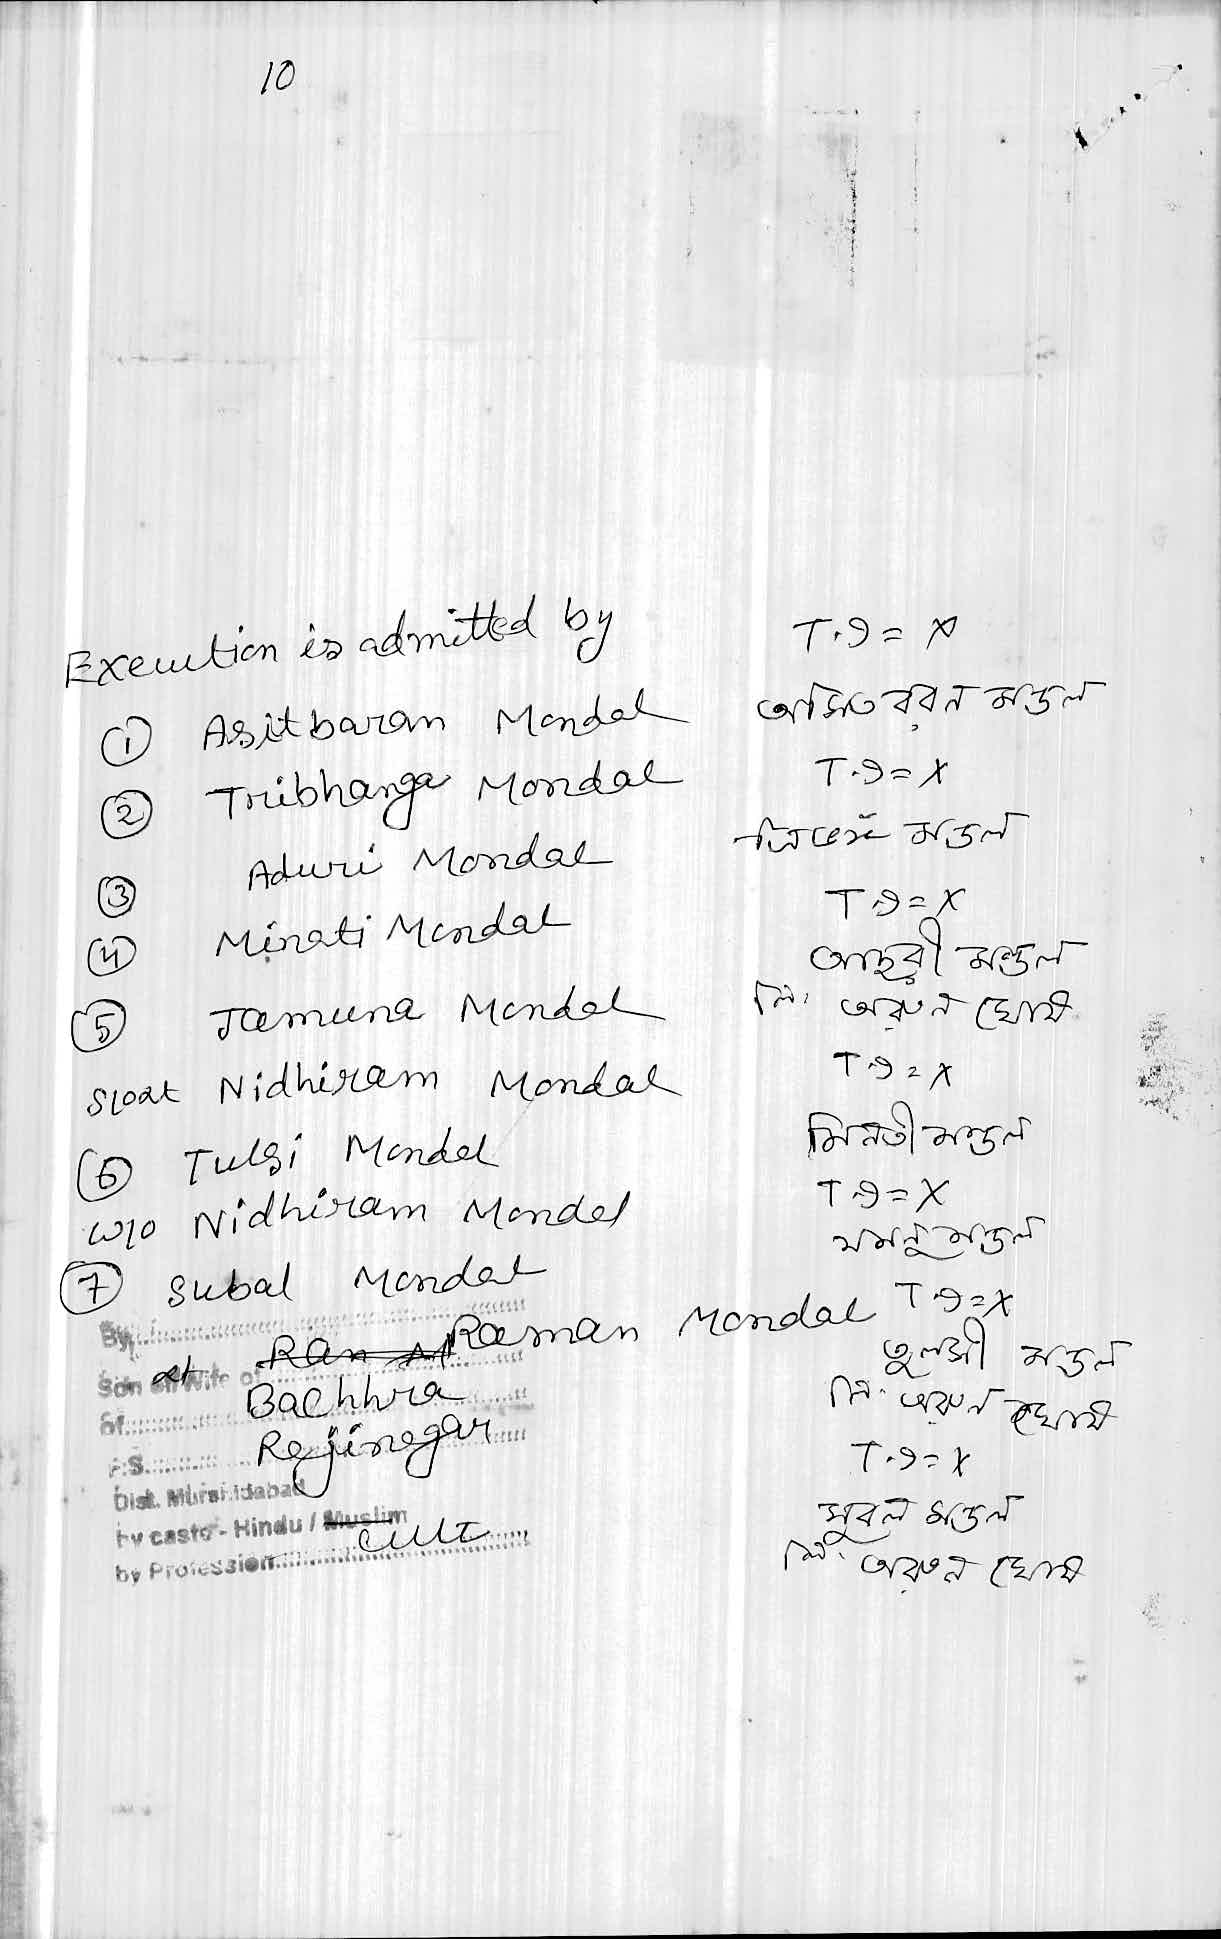 10
Execution is admitted by
① Asitbaran Mondal
② Tribhanga Mondal
③ Aduri Mondal
④ Minati Mondal
⑤ Jamuna Mondal
Nidhiram Mondal
⑥ Tulsi Mondal
W/o Nidhiram Mondal
⑦ Subal Mondal
By
Raman Mondal
Son of/Wife of
of Bachhra
P.S. Rejinagar
Dist. Murshidabad
by caste - Hindu / Muslim
by Profession Cult
T.I = X
অসিত বরন মন্ডল
T.I = X
মন্ডল
T.I = X
আদুরী মন্ডল
লি: অরুন ঘোষ
T.I = X
মিনতী মন্ডল
T.I = X
যমুনা মন্ডল
T.I = X
তুলসী মন্ডল
লি: অরুন ঘোষ
T.I = X
সুবল মন্ডল
লি: অরুন ঘোষ